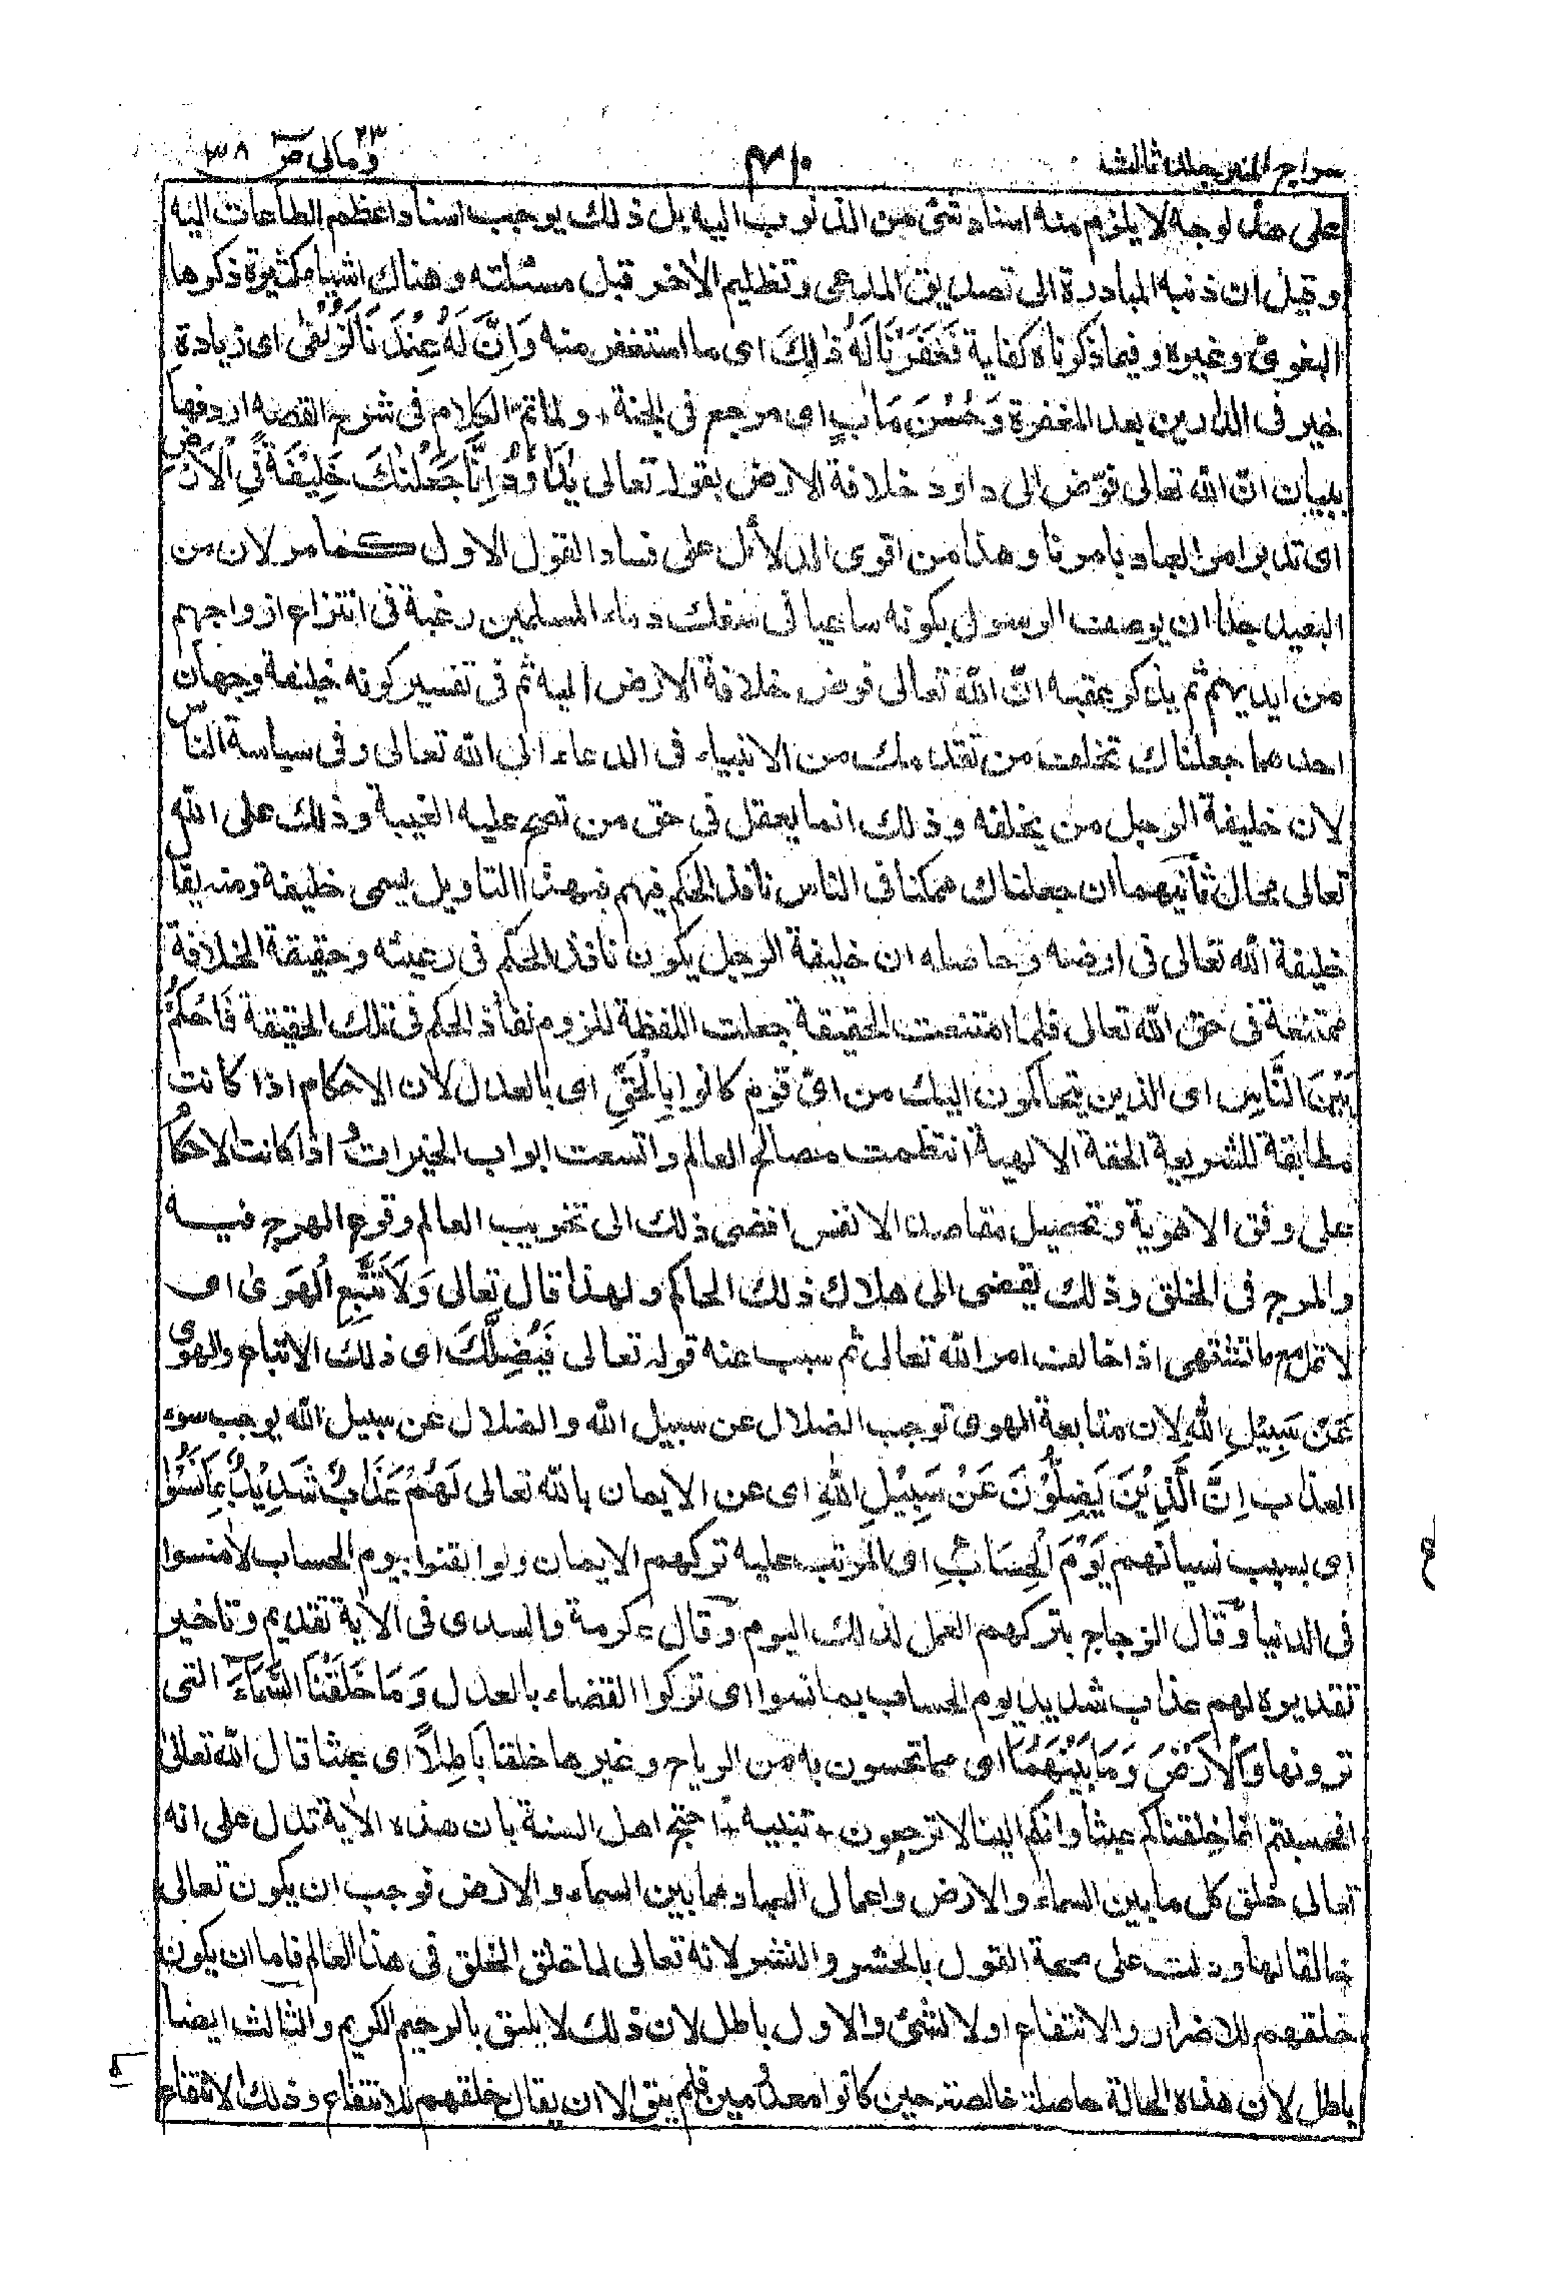 سراج المنير جلد ثالث ٤١٠ ومالى ٢٣ ص ٣٨
على هذا لوجه لا يلزم منه اسناد شئ من الذنوب اليه بل ذلك يوجب اسناد اعظم الطاعات اليه
وقيل ان ذنبه المبادرة الى تصديق المدعى وتظليم الاخر قبل مسئلته وهناك اشياء كثيرة ذكرها
البغوى وغيره وفيما ذكرناه كفاية فَغَفَرْنَا لَهُ ذٰلِكَ اى ما استغفر منه وَاِنَّ لَهُ عِنْدَ نَا لَزُلْفٰى اى زيادة
خير فى الدارين بعد المغفرة وَحُسْنَ مَاٰبٍ اى مرجع فى الجنة ولما تم الكلام فى شرح القصه اردفها
ببيان ان الله تعالى فوّض الى داود خلافة الارض بقوله تعالى يٰدَاوٗدُ اِنَّا جَعَلْنٰكَ خَلِيْفَةً فِى الْاَرْضِ
اى تدبر امر العباد بامرنا وهذا من اقوى الدلائل على فساد القول الاول كما مر لان من
البعيد جدا ان يوصف الرسول بكونه ساعيا فى سفك دماء المسلمين رغبة فى انتزاع ازواجهم
من ايديهم ثم يذكر عقبه ان الله تعالى فوض خلافة الارض اليه ثم فى تفسير كونه خليفة وجهان
احدهما جعلناك تخلف من تقدمك من الانبياء فى الدعاء الى الله تعالى وفى سياسة الناس
لان خليفة الرجل من يخلفه وذلك انما يعقل فى حق من تصح عليه الغيبة وذلك على الله
تعالى محال ثانيهما ان جعلناك ممكنا فى الناس نافذ الحكم فيهم فبهذا التاويل يسمى خليفة ومنه يقال
خليفة الله تعالى فى ارضه وحاصله ان خليفة الرجل يكون نافذ الحكم فى رعيته وحقيقة الخلافة
ممتنعة فى حق الله تعالى فلما امتنعت الحقيقة جعلت اللفظة للزوم نفاذ الحكم فى تلك الحقيقة فَاحْكُمْ
بَيْنَ النَّاسِ اى الذين يتحاكمون اليك من اى قوم كانوا بِالْحَقِّ اى بالعدل لان الاحكام اذا كانت
مطابقة للشريعة الحقة الالهية انتظمت مصالح العالم واتسعت ابواب الخيرات اذا كانت الاحكام
على وفق الاهوية وتحصيل مقاصد الانفس افضى ذلك الى تخريب العالم وقوع الهرج فيه
والمرج فى الخلق وذلك يفضى الى هلاك ذلك الحاكم ولهذا قال تعالى وَلَا تَتَّبِعِ الْهَوٰى اى
لا تمل مع ما تشتهى اذا خالف امر الله تعالى ثم سبب عنه قوله تعالى فَيُضِلَّكَ اى ذلك الاتباع والهوى
عَنْ سَبِيْلِ اللهِ لان متابعة الهوى توجب الضلال عن سبيل الله والضلال عن سبيل الله يوجب سوء
العذاب اِنَّ الَّذِيْنَ يَضِلُّوْنَ عَنْ سَبِيْلِ اللهِ اى عن الايمان بالله تعالى لَهُمْ عَذَابٌ شَدِيْدٌۢ بِمَا نَسُوْا
اى بسبب نسيانهم يَوْمَ الْحِسَابِ اى المرتب عليه تركهم الايمان ولو ايقنوا بيوم الحساب لامنوا
فى الدنيا وقال الزجاج بتركهم العمل لذلك اليوم وقال عكرمة والسدى فى الاية تقديم وتاخير
تقديره لهم عذاب شديد يوم الحساب بما نسوا اى تركوا القضاء بالعدل وَمَا خَلَقْنَا السَّمَآءَ التى
ترونها وَالْاَرْضَ وَمَا بَيْنَهُمَا اى مما تحسون به من الرياح وغيرها خلقا بَاطِلًا اى عبثا قال الله تعالى
افحسبتم انما خلقناكم عبثا وانكم الينا لا ترجعون تنبيه احتج اهل السنة بان هذه الاية تدل على انه
تعالى خلق كل ما بين السماء والارض واعمال العباد مما بين السماء والارض فوجب ان يكون تعالى
خالقا لها ودلت على صحة القول بالحشر والنشر لانه تعالى لما خلق الخلق فى هذا العالم فاما ان يكون
خلقهم للاضرار والانتفاع او لا لشئ والاول باطل لان ذلك لا يليق بالرحيم الكريم والثالث ايضا
باطل لان هذه الحالة حاصلة خالصة حين كانوا معدومين فلم يبق الا ان يقال خلقهم للانتفاع وذلك الانتفاع